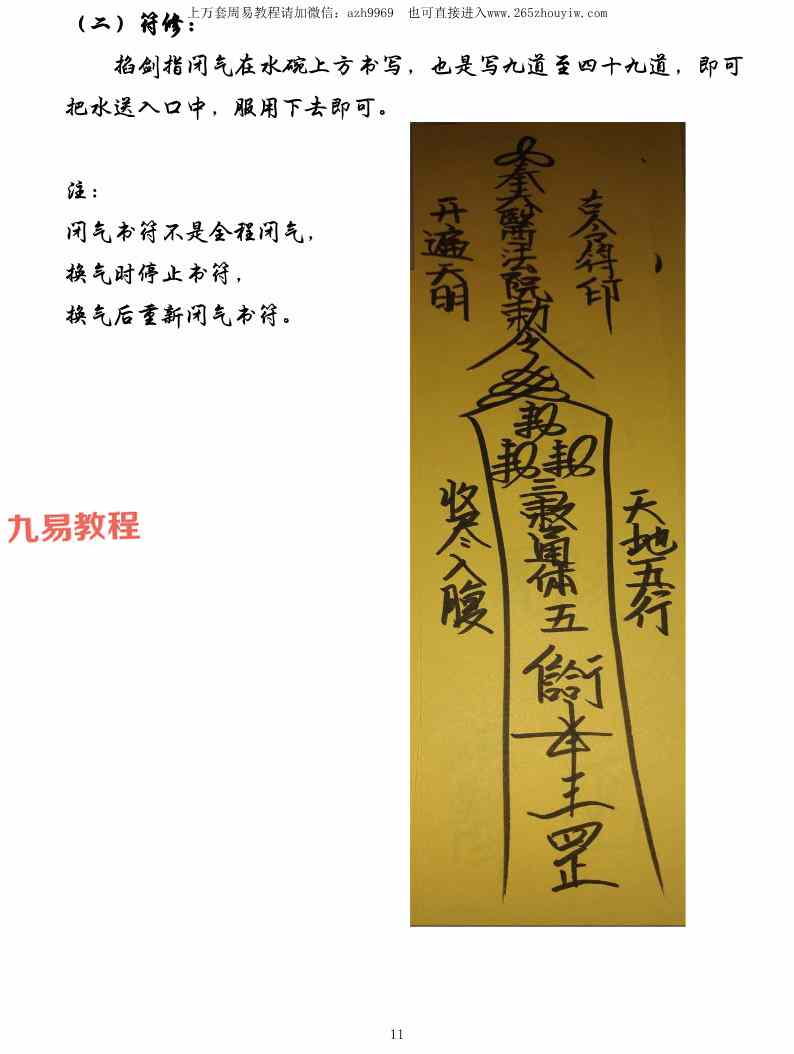 上万套周易教程请加微信：azh9969 也可直接进入www.265zhouyiw.com
（二）符修：
掐剑指闭气在水碗上方书写，也是写九道至四十九道，即可
把水送入口中，服用下去即可。
注：
闭气书符不是全程闭气，
换气时停止书符，
换气后重新闭气书符。
九易教程
奉天醫法院勅令
开遍天明
收尽入腹
天地五行
11